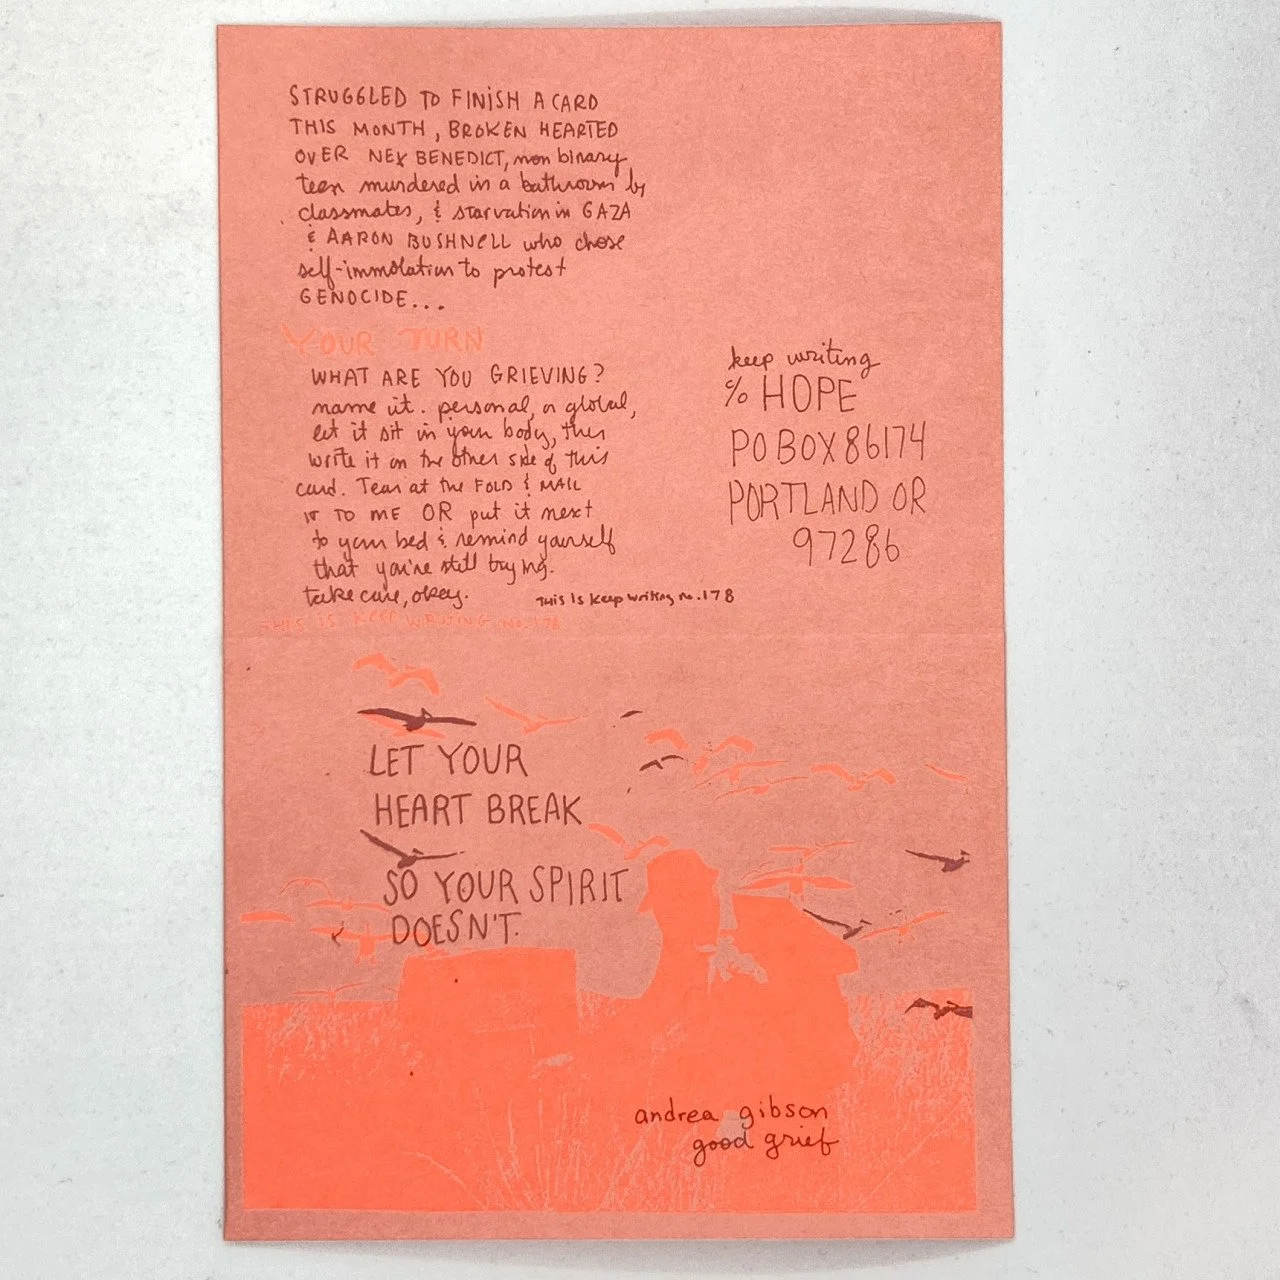 STRUGGLED TO FINISH A CARD
THIS MONTH, BROKEN HEARTED
OVER NEX BENEDICT, non binary
teen murdered in a bathroom by
classmates, & starvation in GAZA
& AARON BUSHNELL who chose
self-immolation to protest
GENOCIDE...
YOUR TURN
WHAT ARE YOU GRIEVING?
name it. personal, or global,
let it sit in your body, then
write it on the other side of this
card. Tear at the FOLD & MAIL
IT TO ME OR put it next
to your bed & remind yourself
that you're still trying.
take care, okay.
THIS IS Keep writing no. 178
THIS IS KEEP WRITING NO. 178
keep writing
c/o HOPE
PO BOX 86174
PORTLAND OR
97286
LET YOUR
HEART BREAK
SO YOUR SPIRIT
DOESN'T.
andrea gibson
good grief